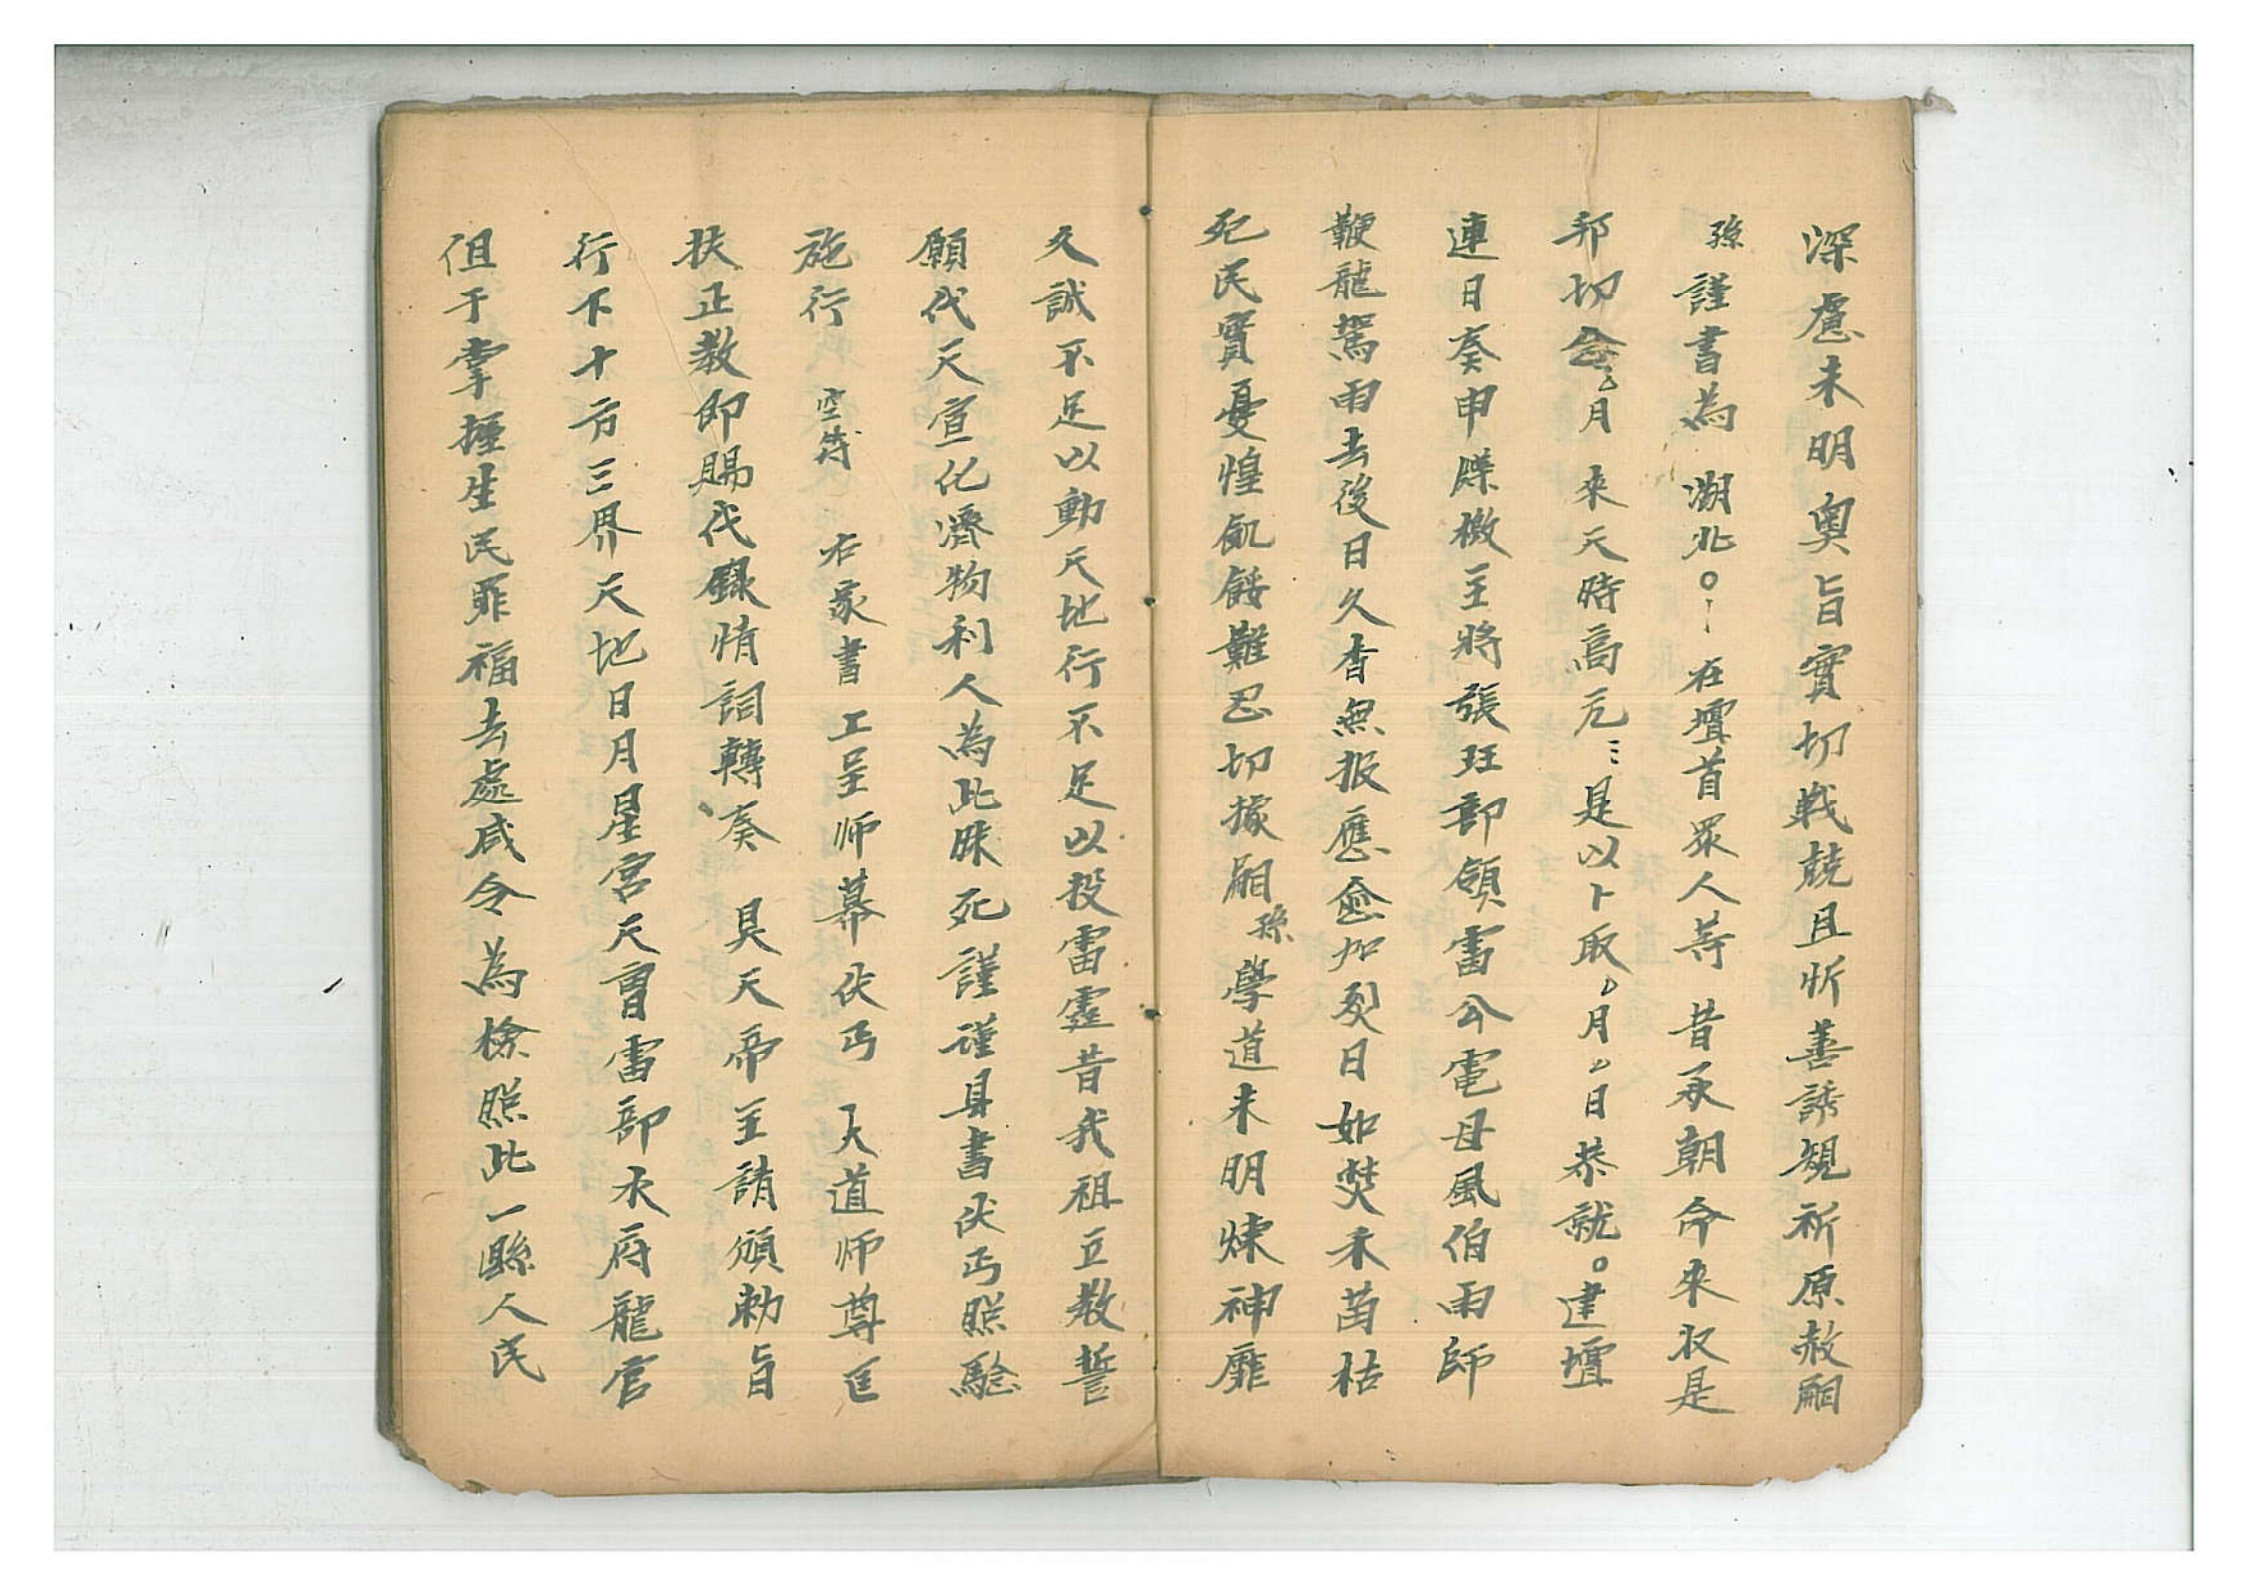 深慮未明奧旨實切戰兢且忻善誘規祈原赦嗣
孫謹書為 湖北○ 在壇首眾人等 昔承朝命來收是
邦切念 月來天時高亢 是以卜取 月 日恭就○建壇
連日奏申牒檄主將張珏部領雷公電母風伯雨師
鞭龍駕雨去後日久杳無报應愈加烈日如焚禾苗枯
死民實憂惶飢餒難忍切據嗣孫學道未明煉神靡
久誠不足以動天地行不足以役雷霆昔我祖立教誓
願代天宣化濟物利人為此昧死謹謹具書伏丏照驗
施行 空符 右家書上呈师幕伏丏 天道师尊匡
扶正教即賜代錄情詞轉奏 昊天帝主請頒勅旨
行下十方三界天地日月星宮天曹雷部水府龍官
但于掌握生民罪福去處咸令為檢照此一縣人民